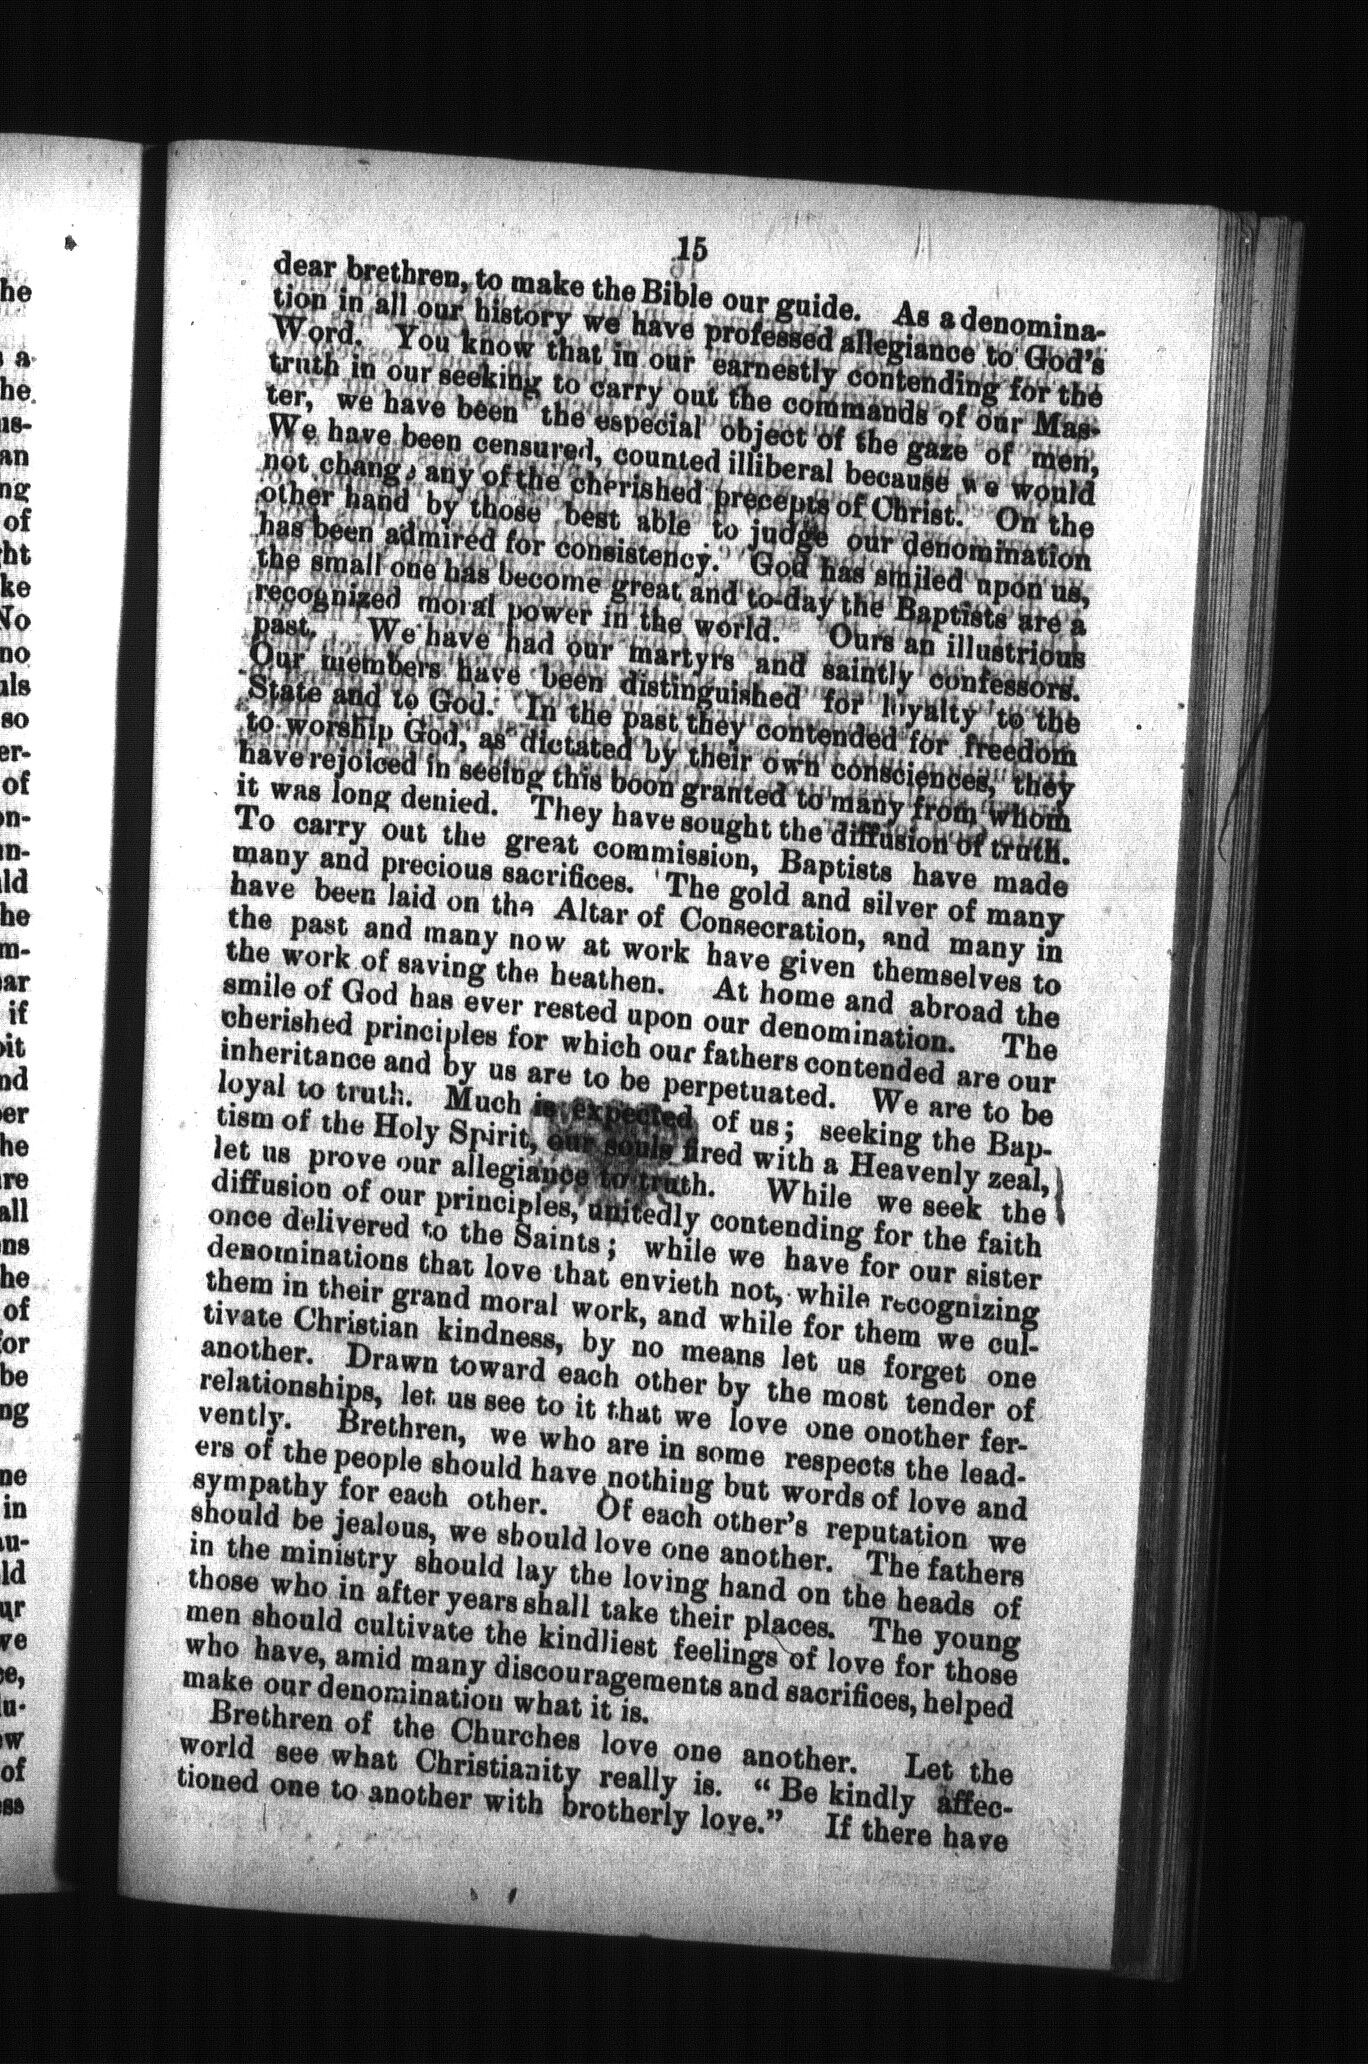 15
dear brethren, to make the Bible our guide. As a denomina-
tion in all our history we have professed allegiance to God's
Word. You know that in our earnestly contending for the
truth in our seeking to carry out the commands of our Mas-
ter, we have been the especial object of the gaze of men,
We have been censured, counted illiberal because we would
not change any of the cherished precepts of Christ. On the
other hand by those best able to judge our denomination
has been admired for consistency. God has smiled upon us,
the small one has become great and to-day the Baptists are a
recognized moral power in the world. Ours an illustrious
past. We have had our martyrs and saintly confessors.
Our members have been distinguished for loyalty to the
State and to God. In the past they contended for freedom
to worship God, as dictated by their own consciences, they
have rejoiced in seeing this boon granted to many from whom
it was long denied. They have sought the diffusion of truth.
To carry out the great commission, Baptists have made
many and precious sacrifices. The gold and silver of many
have been laid on the Altar of Consecration, and many in
the past and many now at work have given themselves to
the work of saving the heathen. At home and abroad the
smile of God has ever rested upon our denomination. The
cherished principles for which our fathers contended are our
inheritance and by us are to be perpetuated. We are to be
loyal to truth. Much is expected of us; seeking the Bap-
tism of the Holy Spirit, our souls fired with a Heavenly zeal,
let us prove our allegiance to truth. While we seek the
diffusion of our principles, unitedly contending for the faith
once delivered to the Saints; while we have for our sister
denominations that love that envieth not, while recognizing
them in their grand moral work, and while for them we cul-
tivate Christian kindness, by no means let us forget one
another. Drawn toward each other by the most tender of
relationships, let us see to it that we love one onother fer-
vently. Brethren, we who are in some respects the lead-
ers of the people should have nothing but words of love and
sympathy for each other. Of each other's reputation we
should be jealous, we should love one another. The fathers
in the ministry should lay the loving hand on the heads of
those who in after years shall take their places. The young
men should cultivate the kindliest feelings of love for those
who have, amid many discouragements and sacrifices, helped
make our denomination what it is.
Brethren of the Churches love one another. Let the
world see what Christianity really is. "Be kindly affec-
tioned one to another with brotherly love." If there have